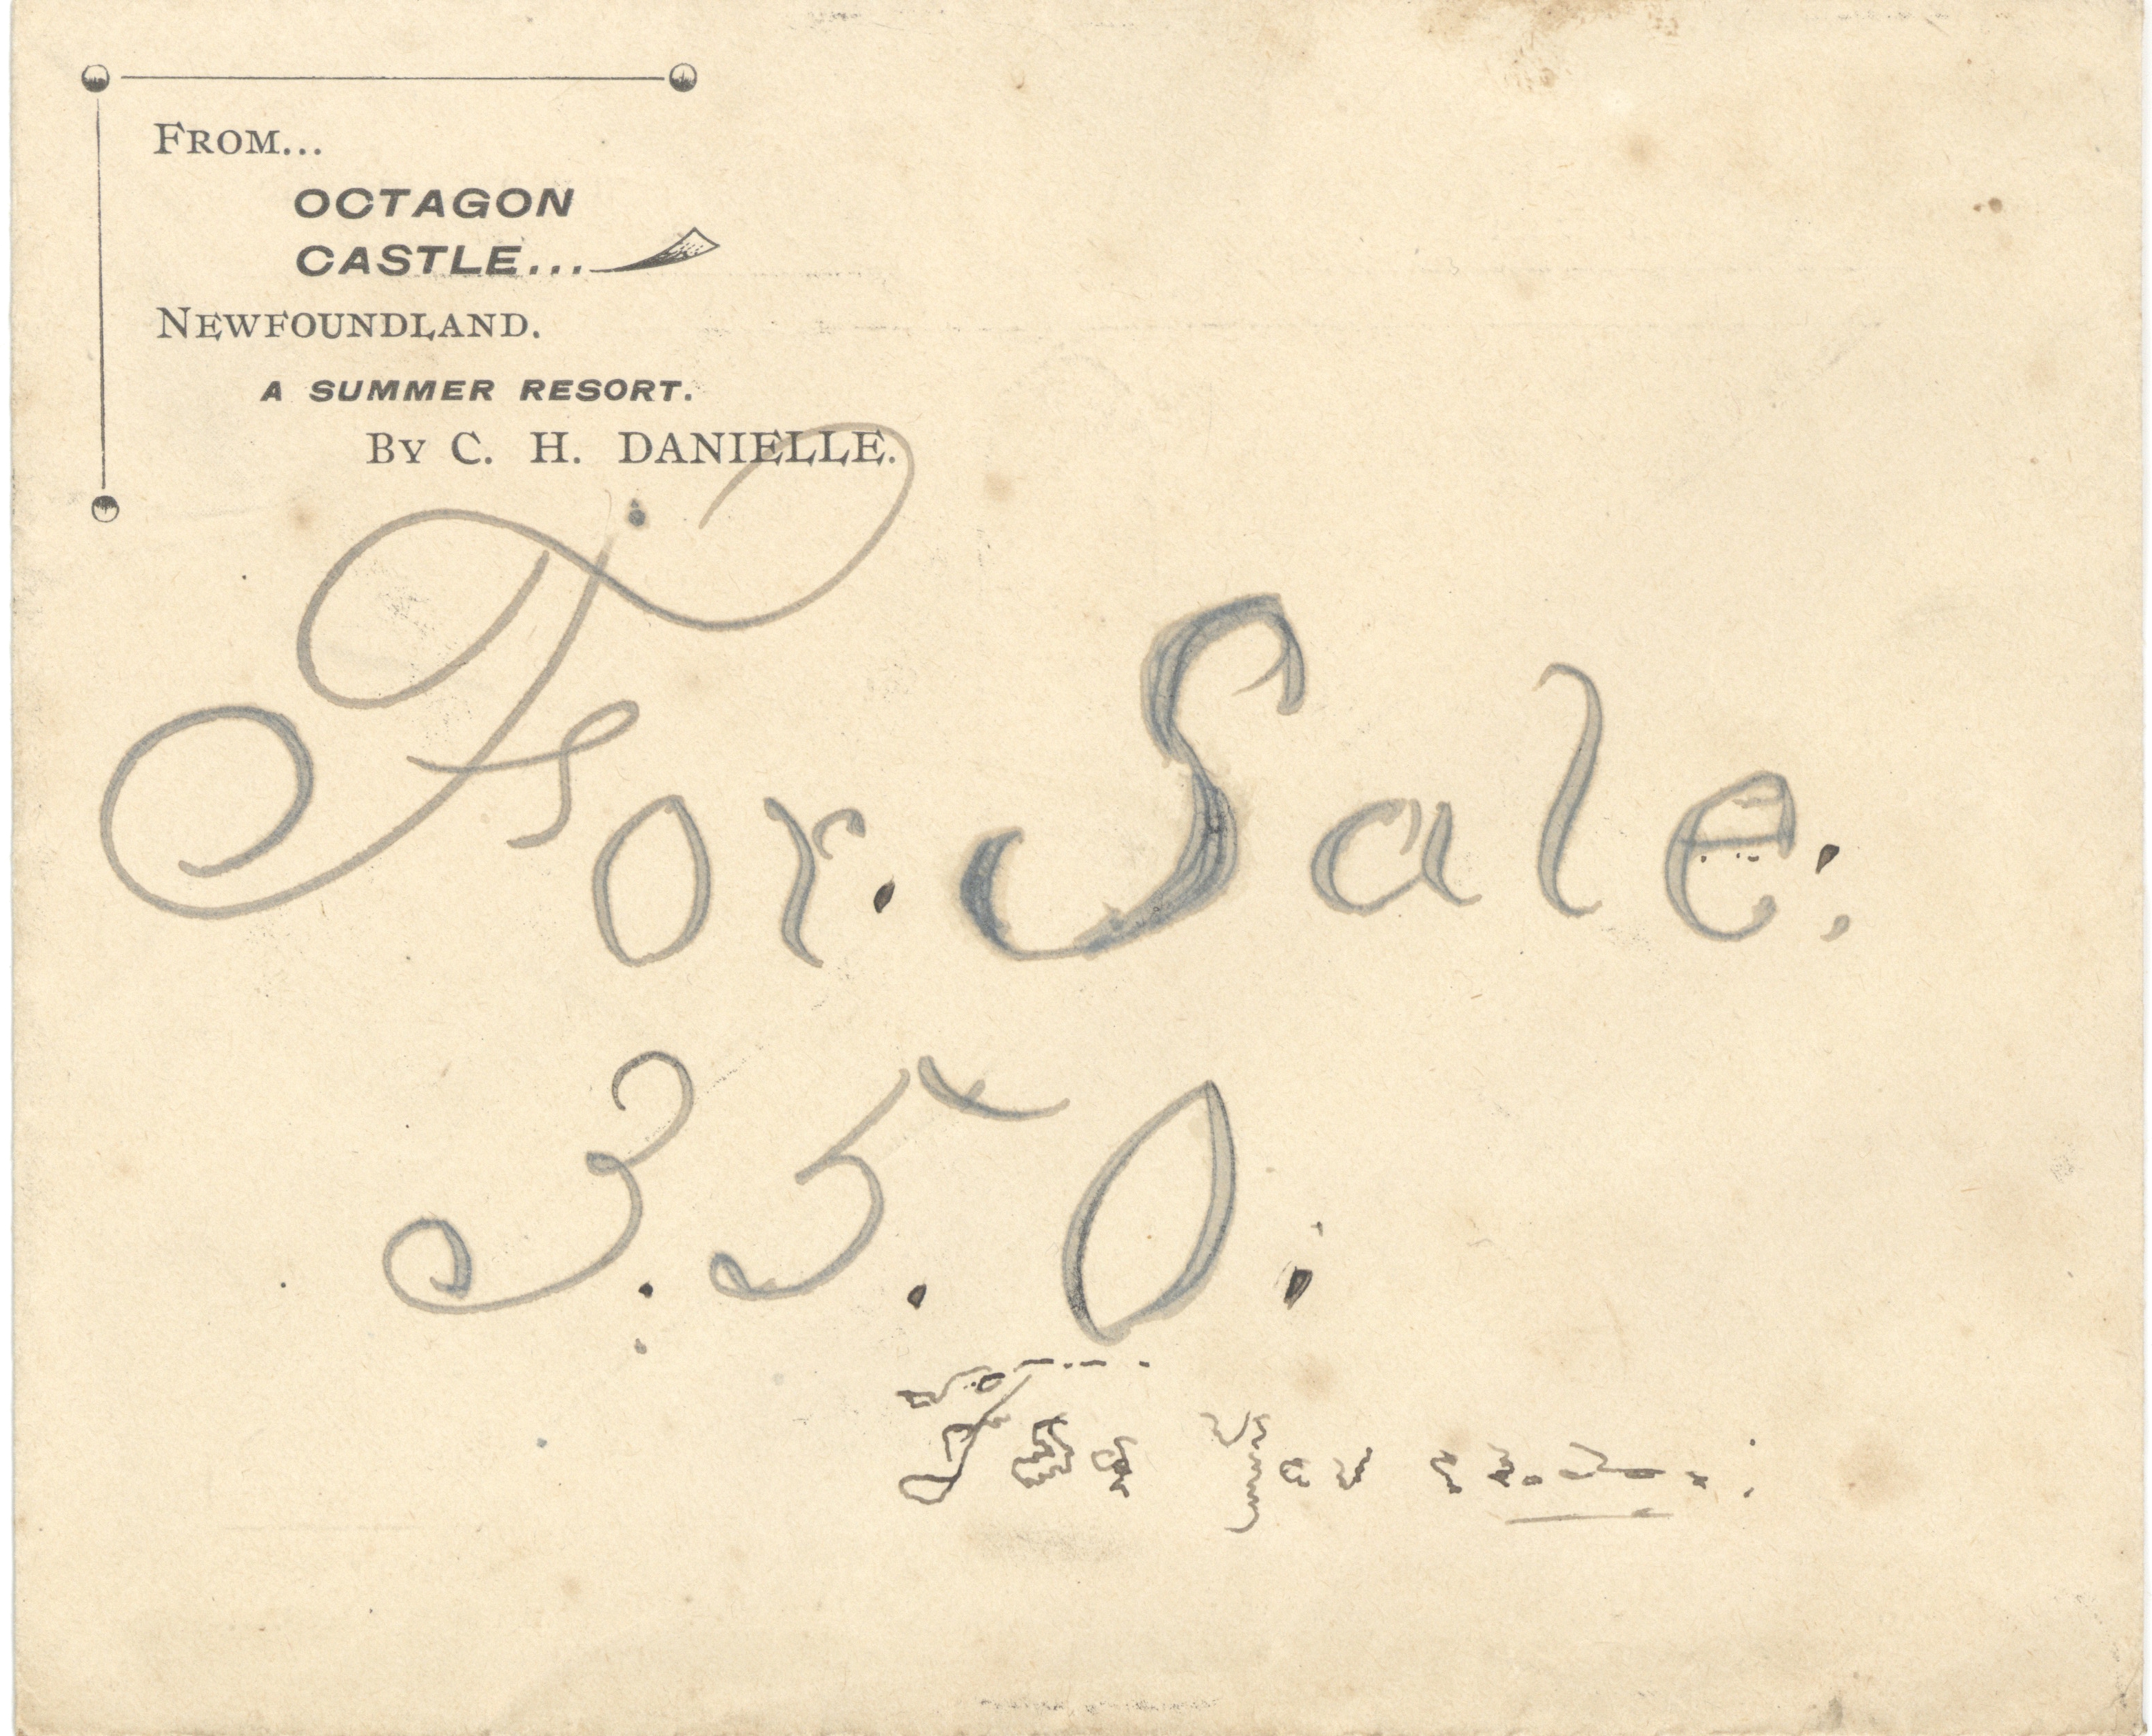 FROM...
OCTAGON
CASTLE...
NEWFOUNDLAND.
A SUMMER RESORT.
By C. H. DANIELLE.
For. Sale.
3.5.0.